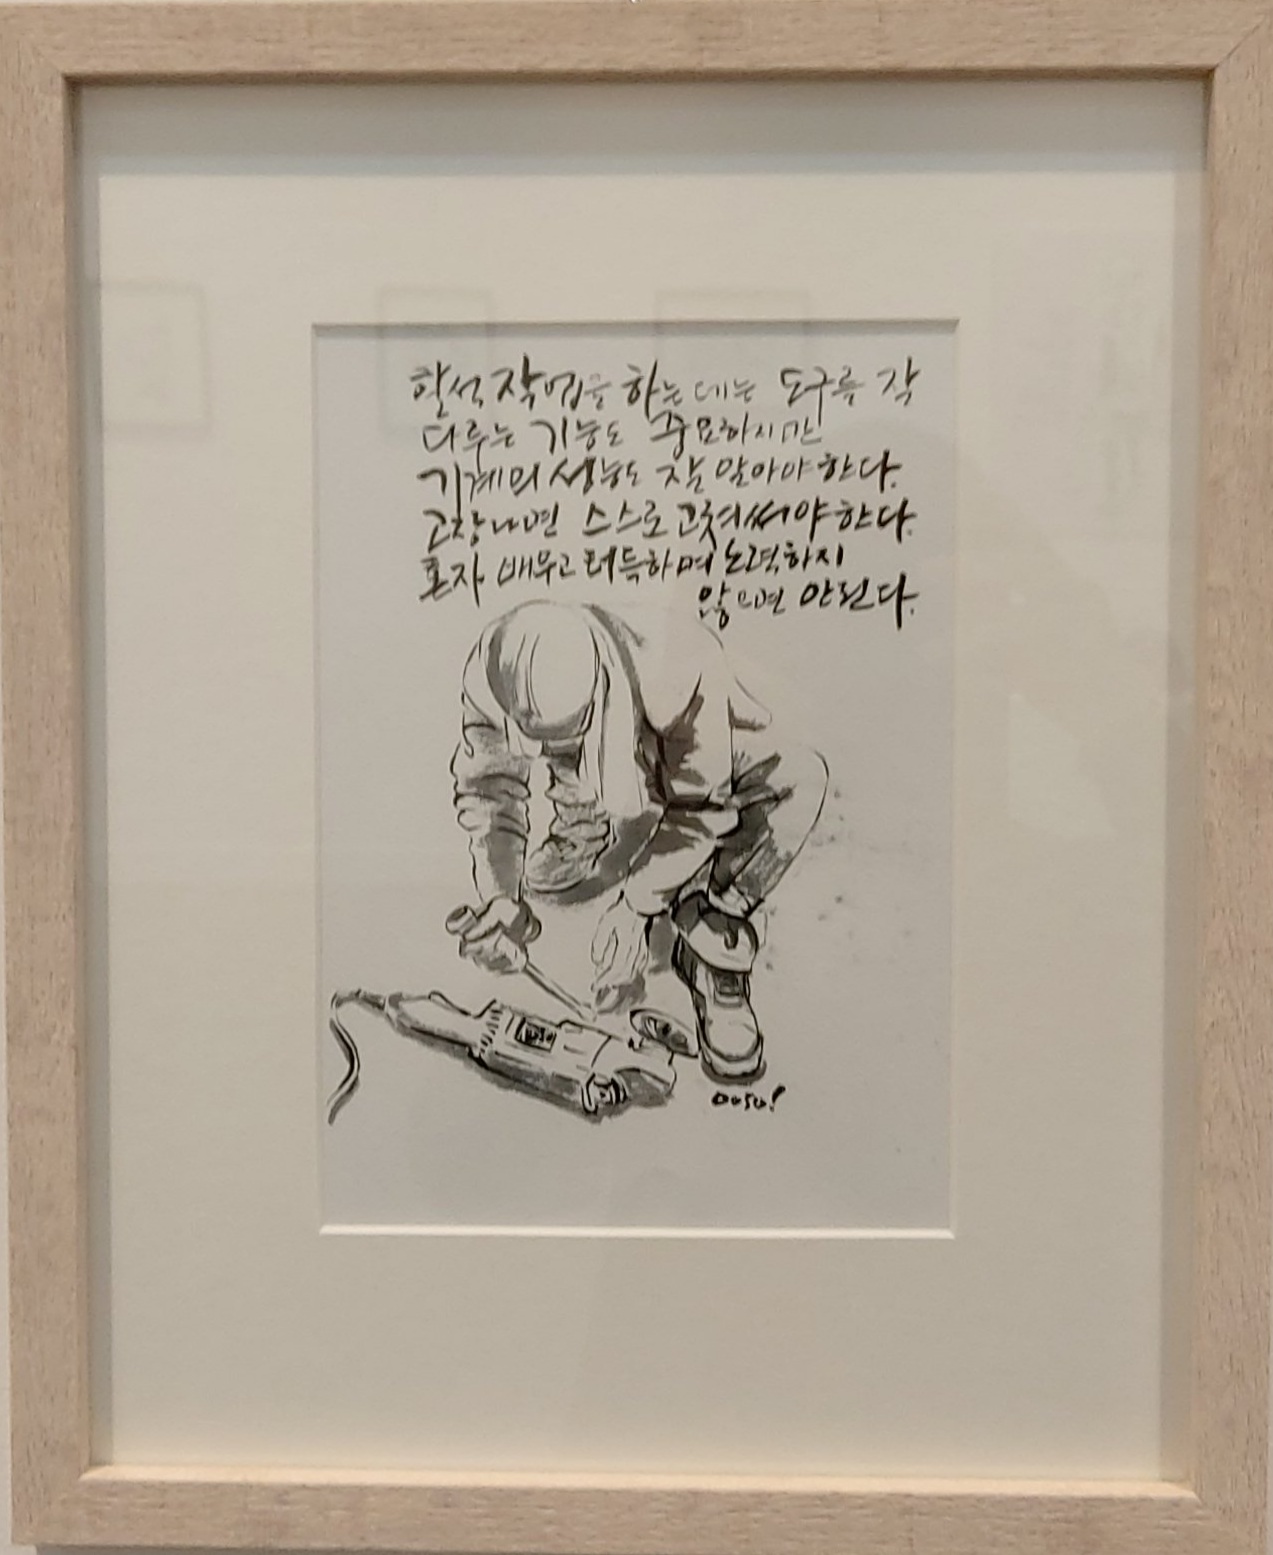 할석 작업을 하는데는 도구를 잘
다루는 기능도 중요하지만
기계의 성능도 잘 알아야 한다.
고장나면 스스로 고쳐써야 한다.
혼자 배우고 터득하며 노력하지
않으면 안된다.